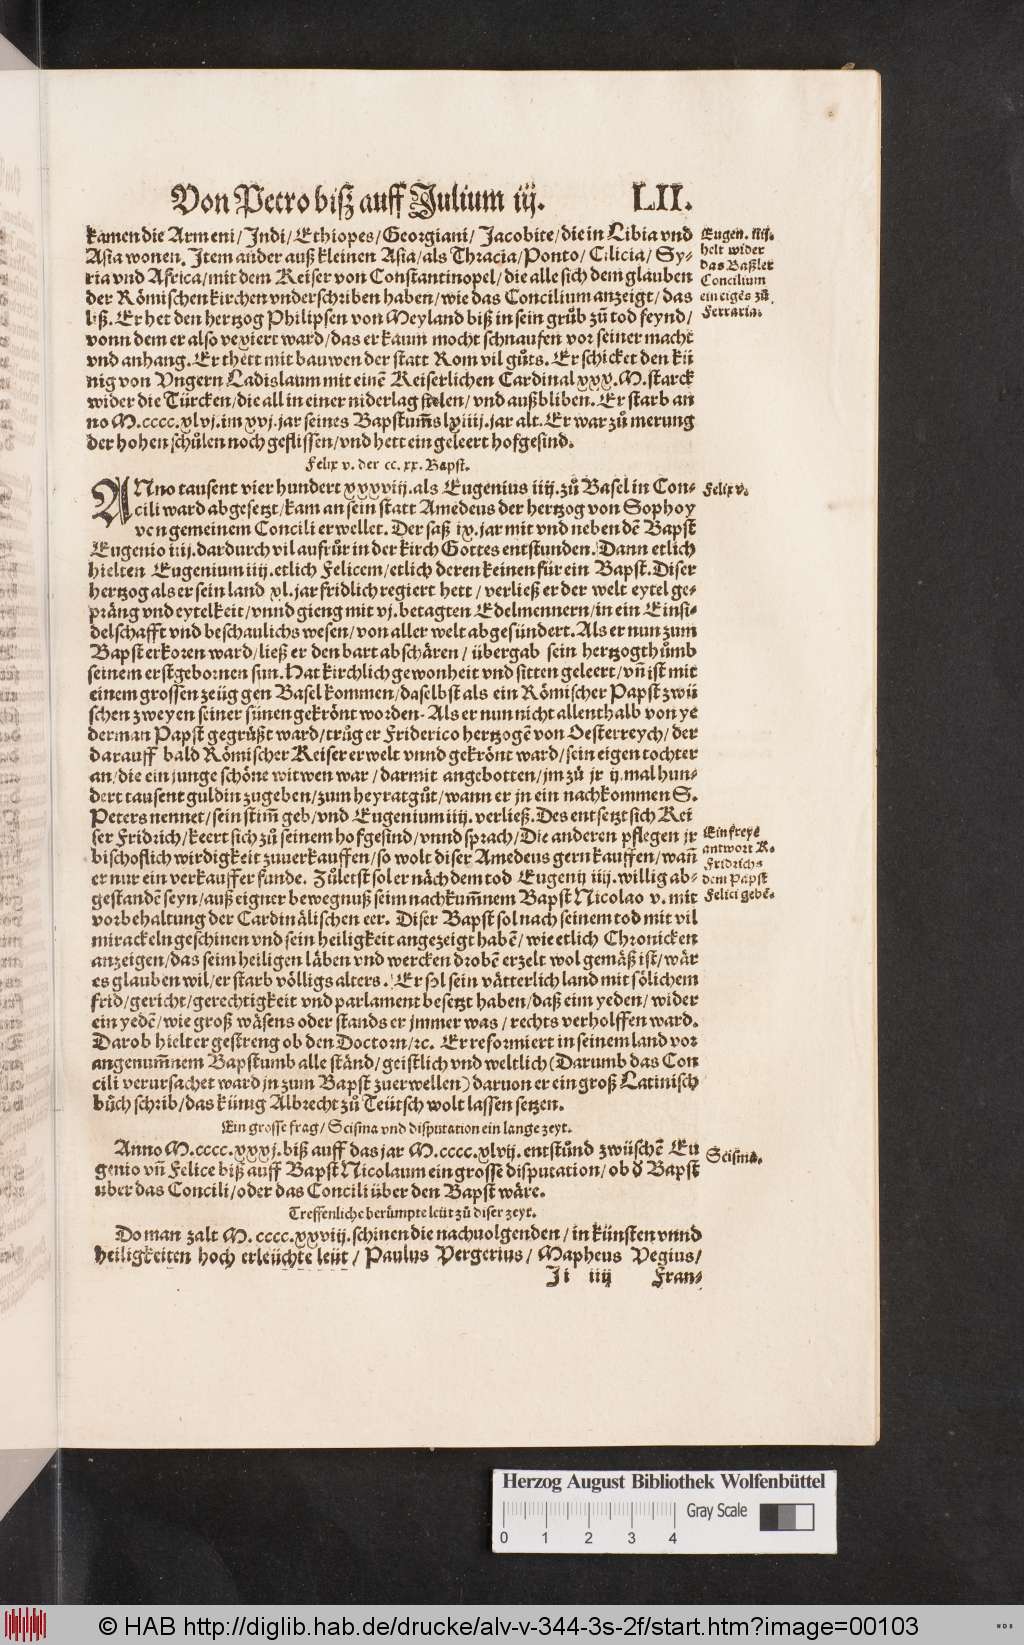 Von Petro biß auff Julium iij. LII.
kamen die Armeni/ Indi/ Ethiopes/ Georgiani/ Jacobite/ die in Libia vnd
Asia wonen. Item ander auß kleinen Asia/ als Thracia/ Ponto/ Cilicia/ Sy-
ria vnd Africa/ mit dem Keiser von Constantinopel/ die alle sich dem glauben
der Römischen kirchen vnderschriben haben/ wie das Concilium anzeigt/ das
liß. Er het den hertzog Philipsen von Meyland biß in sein grůb zů tod feynd/
vonn dem er also vexiert ward/ das er kaum mocht schnaufen vor seiner macht
vnd anhang. Er thett mit bauwen der statt Rom vil gůts. Er schicket den kü
nig von Vngern Ladislaum mit einē Keiserlichen Cardinal xxx. M. starck
wider die Türcken/ die all in einer niderlag stelen/ vnd außbliben. Er starb an
no M.cccc.xlvj. im xvj. jar seines Bapstum̄s lxiiij. jar alt. Er war zů merung
der hohen schůlen noch geflissen/ vnd hett ein geleert hofgesind.
Eugen. iiij.
helt wider
das Baßler
Concilium
ein eigēs zů
Ferraria.
Felix v. der cc. xx. Bapst.
ANno tausent vier hundert xxxviij. als Eugenius iiij. zů Basel in Con-
cili ward abgesetzt/ kam an sein statt Amedeus der hertzog von Sophoy
von gemeinem Concili erwellet. Der saß ix. jar mit vnd neben dē Bapst
Eugenio iiij. dardurch vil aufrůr in der kirch Gottes entstunden. Dann etlich
hielten Eugenium iiij. etlich Felicem/ etlich deren keinen für ein Bapst. Diser
hertzog als er sein land xl. jar fridlich regiert hett/ verließ er der welt eytel ge-
präng vnd eytelkeit/ vnnd gieng mit vj. betagten Edelmennern/ in ein Einsi-
delschafft vnd beschaulichs wesen/ von aller welt abgesündert. Als er nun zum
Bapst erkoren ward/ ließ er den bart abschären/ übergab sein hertzogthůmb
seinem erstgebornen sun. Hat kirchlich gewonheit vnd sitten geleert/ vn̄ ist mit
einem grossen zeüg gen Basel kommen/ daselbst als ein Römischer Papst zwü
schen zweyen seiner sünen gekrönt worden. Als er nun nicht allenthalb von ye
derman Papst gegrůßt ward/ trůg er Friderico hertzogē von Oesterreych/ der
darauff bald Römischer Keiser erwelt vnnd gekrönt ward/ sein eigen tochter
an/ die ein junge schöne witwen war/ darmit angebotten/ jm zů jr ij. mal hun-
dert tausent guldin zugeben/ zum heyratgůt/ wann er jn ein nachkommen S.
Peters nennet/ sein stim̄ geb/ vnd Eugenium iiij. verließ. Des entsetzt sich Kei
ser Fridrich/ keert sich zů seinem hofgesind/ vnnd sprach/ Die anderen pflegen jr
bischoflich wirdigkeit zuuerkauffen/ so wolt diser Amedeus gern kauffen/ wan̄
er nur ein verkauffer funde. Zůletst sol er näch dem tod Eugenij iiij. willig ab-
gestandē seyn/ auß eigner bewegnuß seim nachkum̄nem Bapst Nicolao v. mit
vorbehaltung der Cardinälischen eer. Diser Bapst sol nach seinem tod mit vil
mirackeln geschinen vnd sein heiligkeit angezeigt habē/ wie etlich Chronicken
anzeigen/ das seim heiligen läben vnd wercken drobē erzelt wol gemäß ist/ wär
es glauben wil/ er starb völligs alters. Er sol sein vätterlich land mit sölichem
frid/ gericht/ gerechtigkeit vnd parlament besetzt haben/ daß eim yeden/ wider
ein yedē/ wie groß wäsens oder stands er jmmer was/ rechts verholffen ward.
Darob hielt er gestreng ob den Doctorn/ rc. Er reformiert in seinem land vor
angenum̄nem Bapstumb alle ständ/ geistlich vnd weltlich (Darumb das Con
cili verursachet ward jn zum Bapst zuerwellen) daruon er ein groß Latinisch
bůch schrib/ das künig Albrecht zů Teütsch wolt lassen setzen.
Felix v.
Ein freye
antwort K.
Fridrichs
dem Papst
Felici gebē.
Ein grosse frag/ Scisma vnd disputation ein lange zeyt.
Anno M.cccc.xxxj. biß auff das jar M.cccc.xlvij. entstůnd zwüschē Eu
genio vn̄ Felice biß auff Bapst Nicolaum ein grosse disputation/ ob d̄ Bapst
über das Concili/ oder das Concili über den Bapst wäre.
Scisma.
Treffenliche berůmpte leüt zů diser zeyt.
Do man zalt M. cccc.xxviij. schinen die nachuolgenden/ in künsten vnnd
heiligkeiten hoch erleüchte leüt/ Paulus Vergerius/ Mapheus Vegius/
Ii iiij Fran-
Herzog August Bibliothek Wolfenbüttel
Gray Scale
0 1 2 3 4
© HAB http://diglib.hab.de/drucke/alv-v-344-3s-2f/start.htm?image=00103